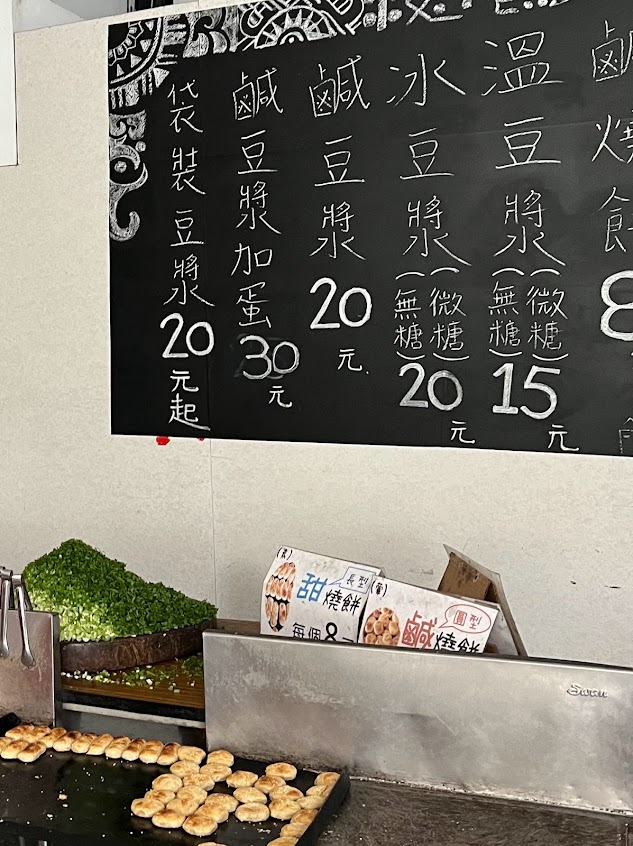 鹹燒餅
8
溫豆漿
(無糖)(微糖)
15元
冰豆漿
(無糖)(微糖)
20元
鹹豆漿
20元
鹹豆漿加蛋
30元
袋裝豆漿
20元起
甜燒餅
長型
每個8元
鹹燒餅
圓型
Swan